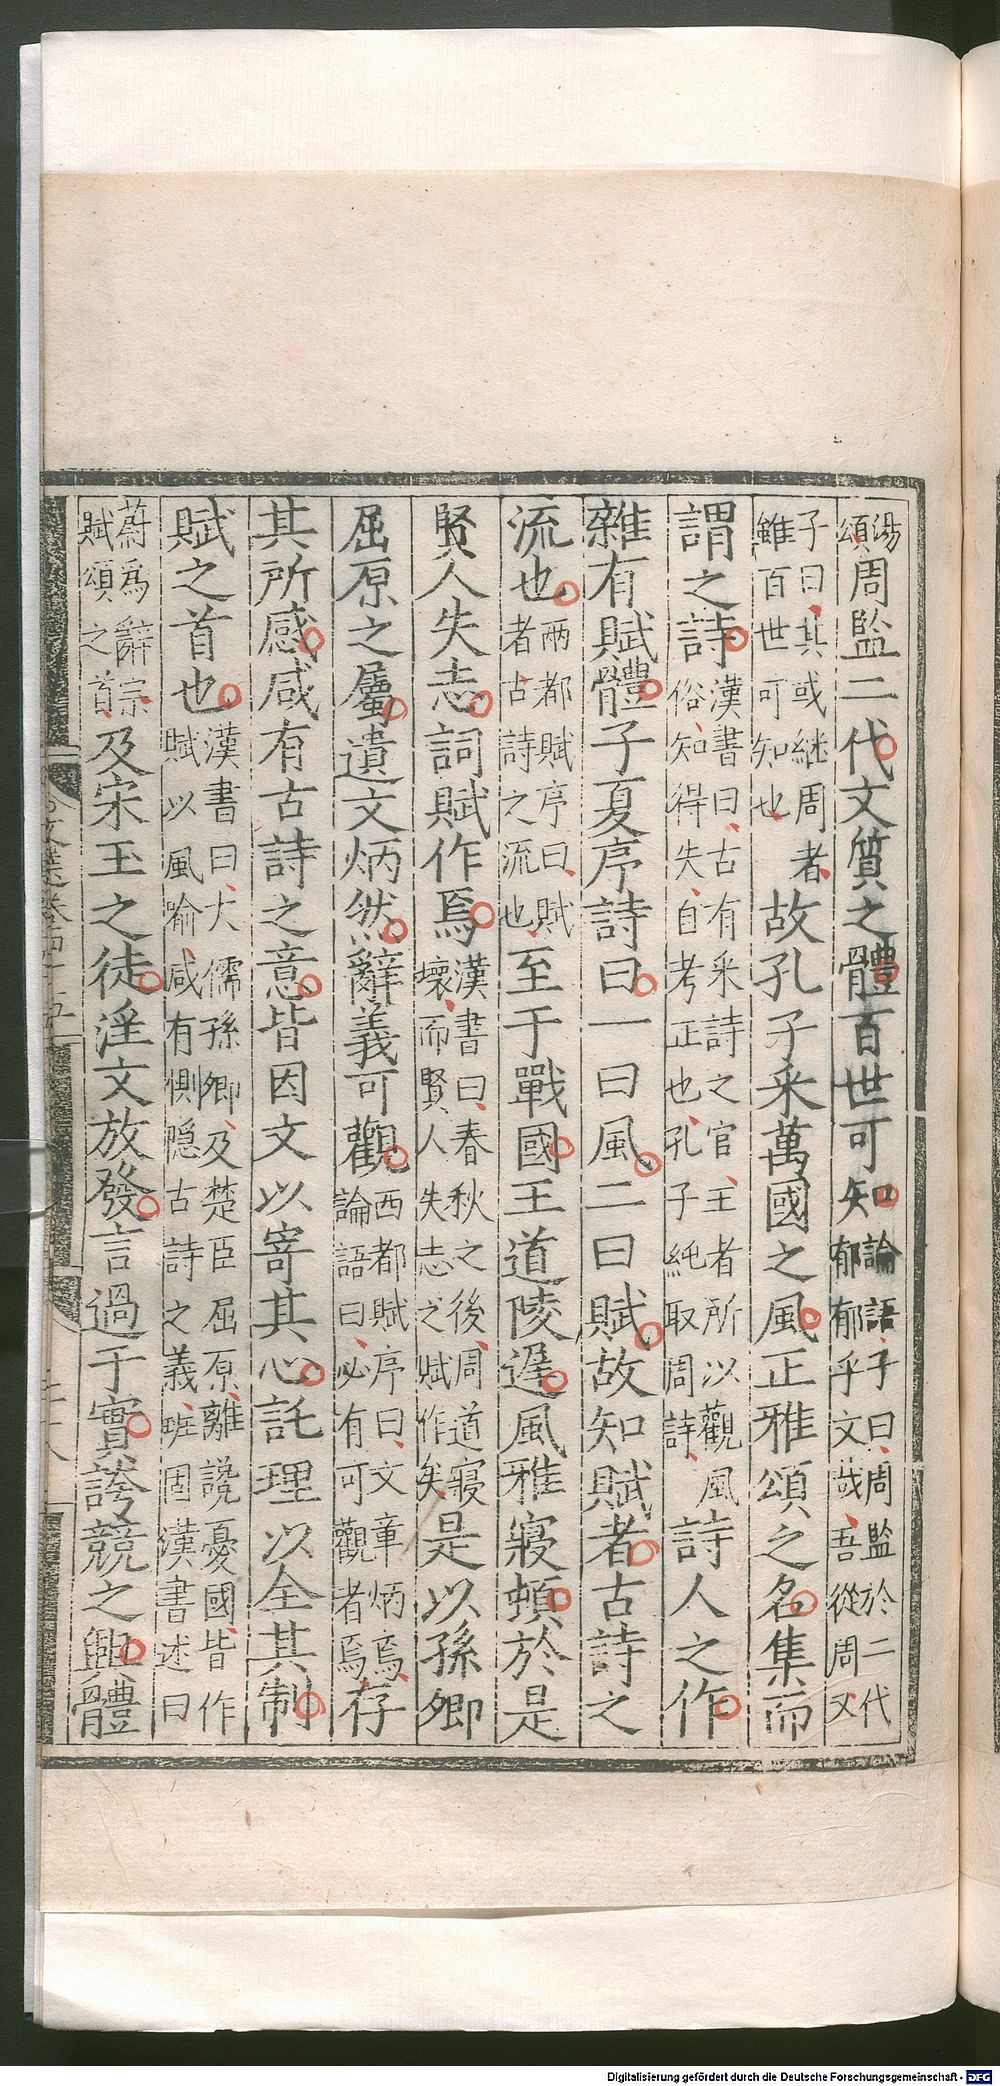 湯頌周監二代文質之體百世可知論語子曰周監於二代郁郁乎文哉吾從周又
子曰其或継周者雖百世可知也故孔子采萬國之風正雅頌之名集而
謂之詩漢書曰古有采詩之官王者所以觀風俗知得失自考正也孔子純取周詩詩人之作
雜有賦體子夏序詩曰一曰風二曰賦故知賦者古詩之
流也兩都賦序曰賦者古詩之流也至于戰國王道陵遲風雅寢頓於是
賢人失志詞賦作焉漢書曰春秋之後周道寢壞而賢人失志之賦作矣是以孫卿
屈原之屬遺文炳然辭義可觀西都賦序曰文章炳焉論語曰必有可觀者焉存
其所感咸有古詩之意皆因文以寄其心託理以全其制
賦之首也漢書曰大儒孫卿及楚臣屈原離讒憂國皆作賦以風喻咸有惻隱古詩之義班固漢書述曰
蔚為辭宗賦頌之首及宋玉之徒淫文放發言過于實誇競之興體
文選卷四十五
Digitalisierung gefördert durch die Deutsche Forschungsgemeinschaft - DFG